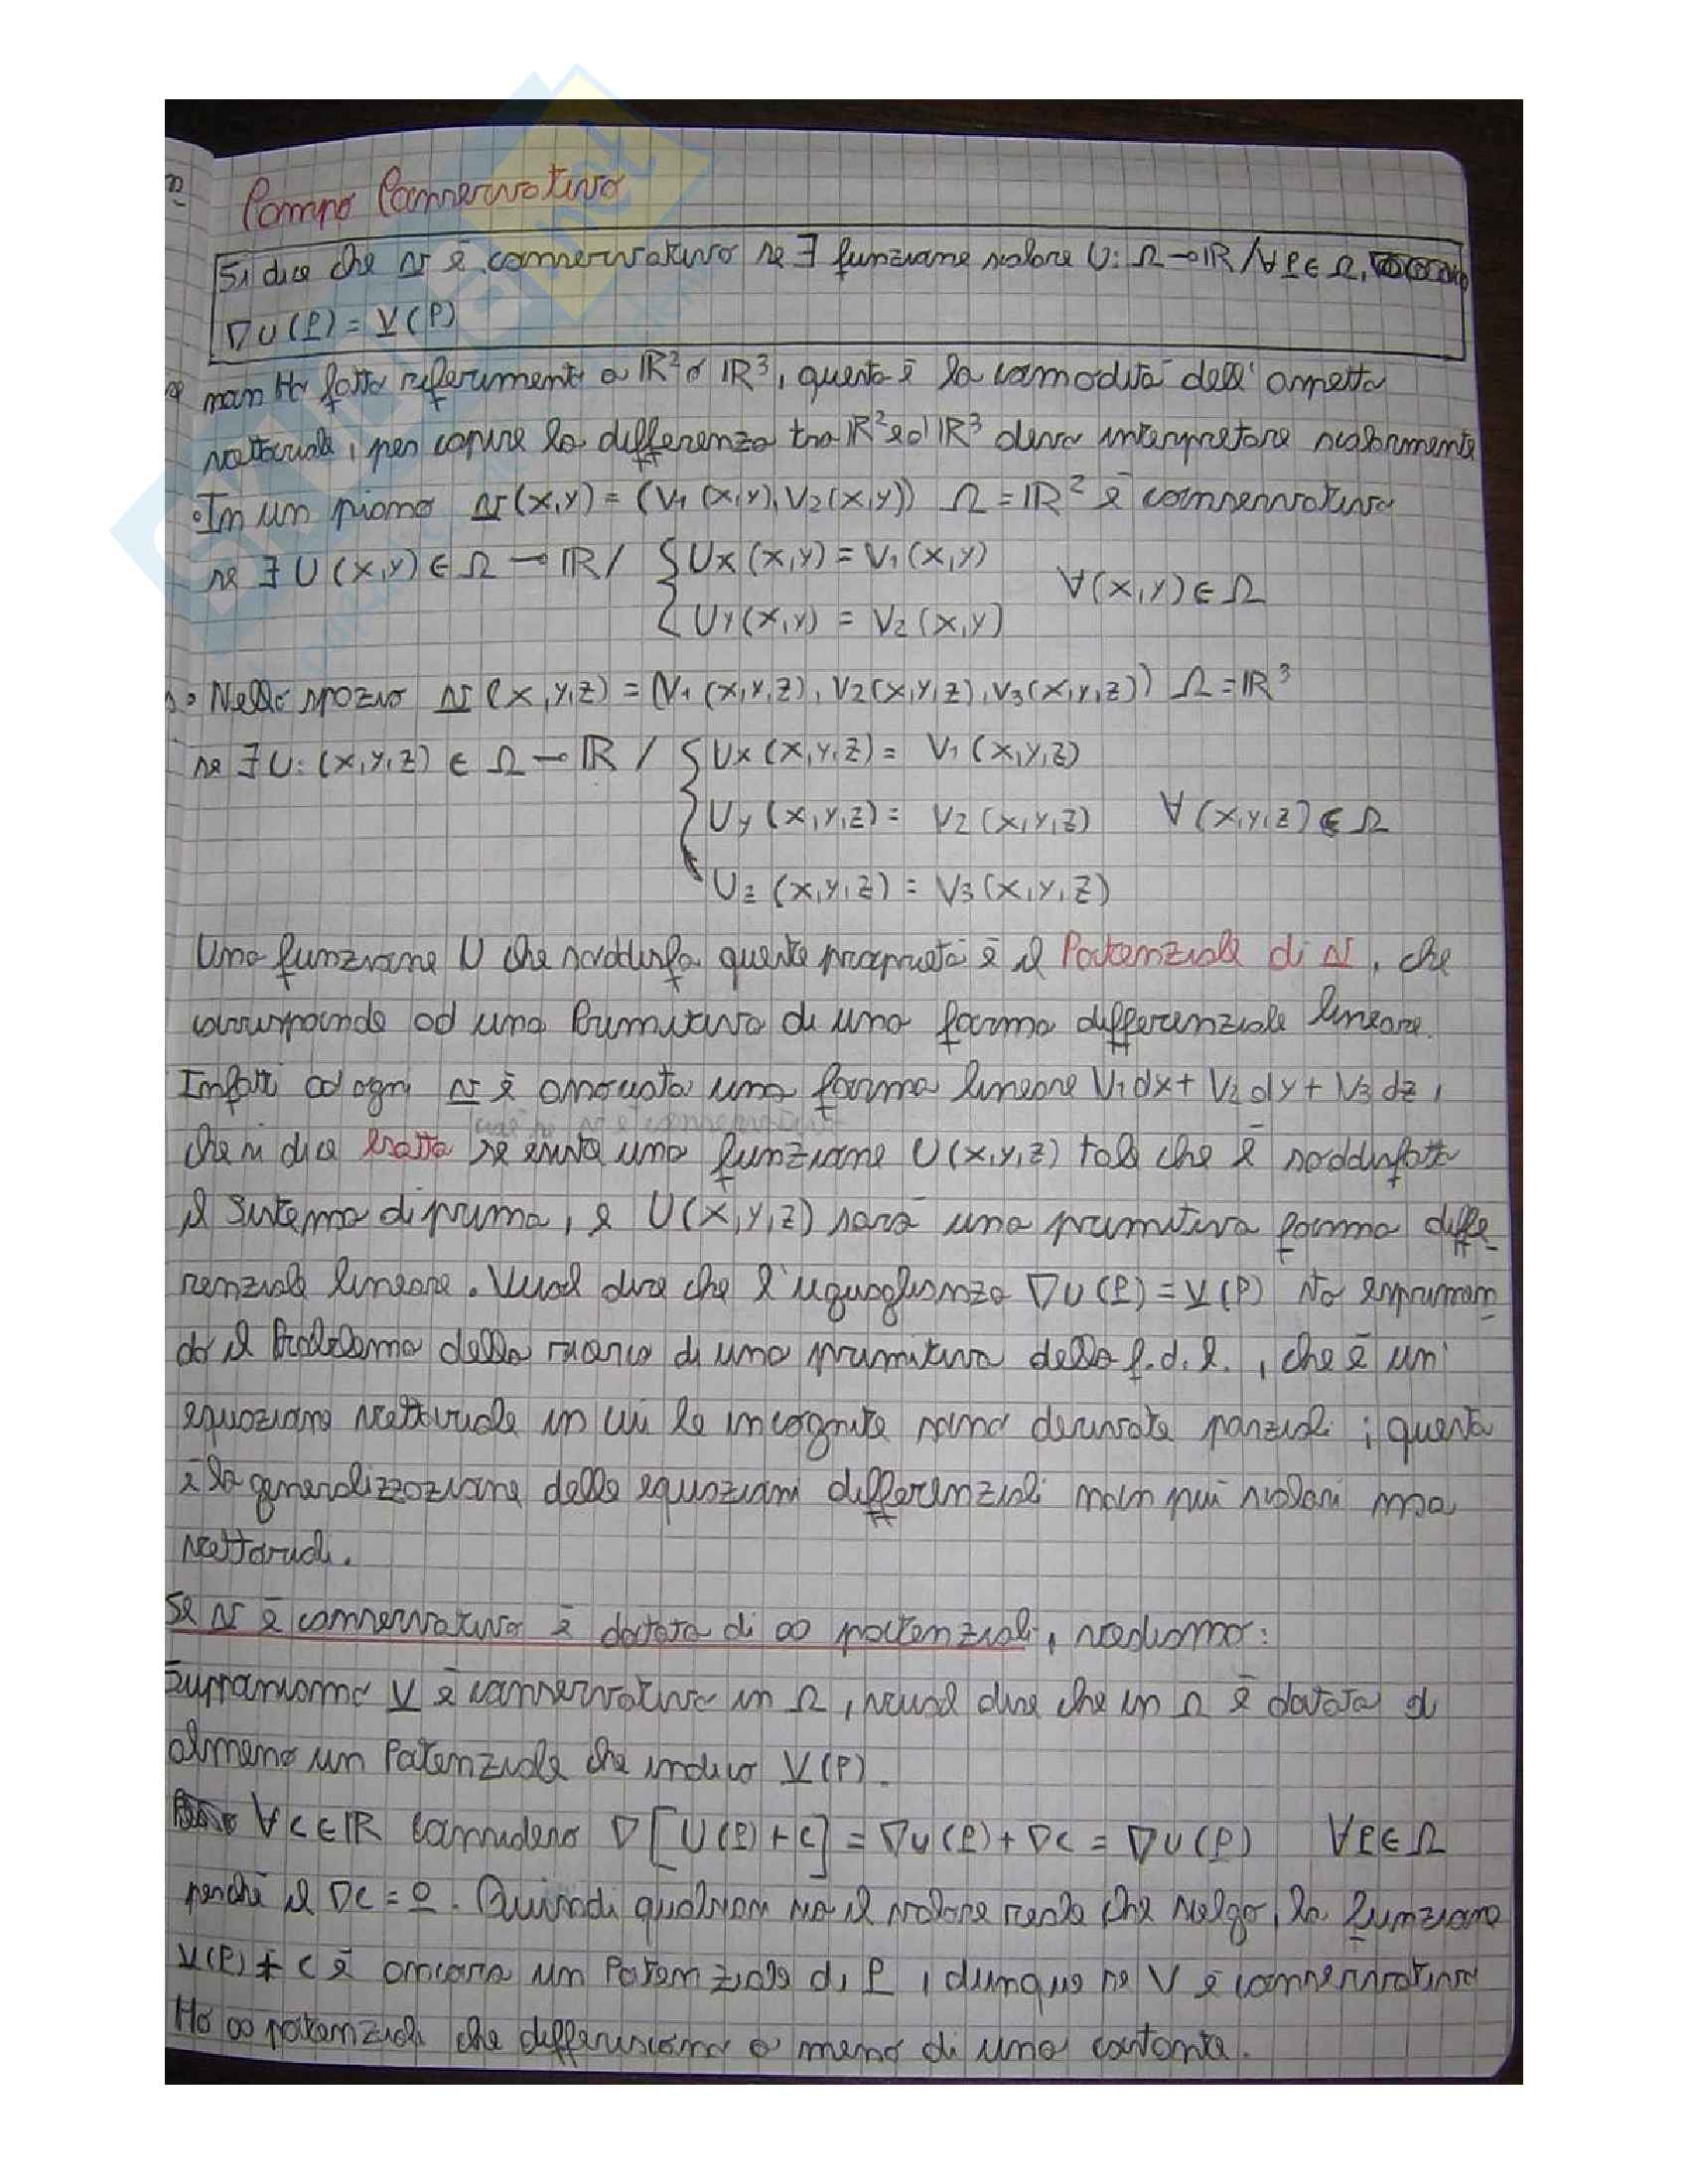 Campo Conservativo
Si dice che v è conservativo se ∃ funzione scalare U: Ω → ℝ / ∀ P ∈ Ω,
∇U(P) = V(P)
non ho fatto riferimento a ℝ² o ℝ³, questa è la comodità dell'aspetto
vettoriale, per capire la differenza tra ℝ² ed ℝ³ devo interpretare scalarmente
• In un piano v(x,y) = (V1(x,y), V2(x,y)) Ω = ℝ² è conservativo
se ∃ U(x,y) ∈ Ω → ℝ / { Ux(x,y) = V1(x,y)
Uy(x,y) = V2(x,y) ∀(x,y) ∈ Ω
• Nello spazio v(x,y,z) = (V1(x,y,z), V2(x,y,z), V3(x,y,z)) Ω = ℝ³
se ∃ U: (x,y,z) ∈ Ω → ℝ / { Ux(x,y,z) = V1(x,y,z)
Uy(x,y,z) = V2(x,y,z) ∀(x,y,z) ∈ Ω
Uz(x,y,z) = V3(x,y,z)
Una funzione U che soddisfa queste proprietà è il Potenziale di v, che
corrisponde ad una Primitiva di una forma differenziale lineare.
Infatti ad ogni v è associata una forma lineare V1dx + V2dy + V3dz,
cioè se v è conservativo
che si dice Esatta se esiste una funzione U(x,y,z) tale che è soddisfatto
il Sistema di prima, e U(x,y,z) sarà una primitiva forma diffe
renziale lineare. Vuol dire che l'uguaglianza ∇U(P) = V(P) sto espriman
do il Problema della ricerca di una primitiva della f.d.l., che è un'
equazione vettoriale in cui le incognite sono derivate parziali; questa
è la generalizzazione delle equazioni differenziali non più scalari ma
vettoriali.
Se v è conservativo è dotato di ∞ potenziali, vediamo:
Supponiamo V è conservativo in Ω, vuol dire che in Ω è dotato di
almeno un Potenziale che indico V(P).
∀ c ∈ ℝ considero ∇[U(P) + c] = ∇U(P) + ∇c = ∇U(P) ∀ P ∈ Ω
perché il ∇c = 0. Quindi qualsiasi sia il valore reale che scelgo, la funzione
V(P) + c è ancora un Potenziale di P, dunque se V è conservativo
Ho ∞ potenziali che differiscono a meno di una costante.